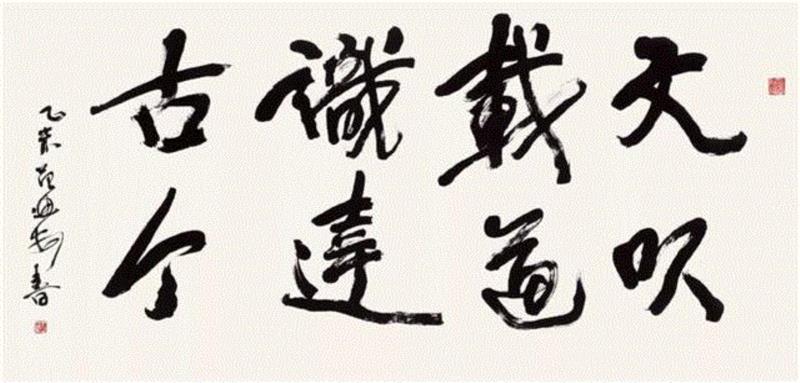 文以
載道
識達
古今
乙未范迪安書